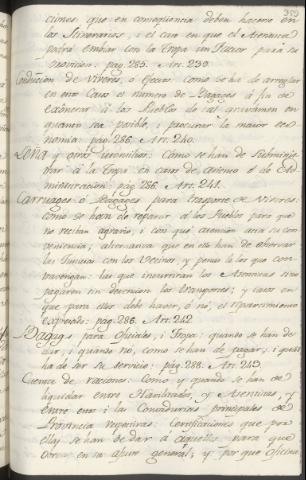 ciones que en conseqüencia deben hacerse en
los Itinerarios, i el caso en que el Asentista
podrá embiar con la Tropa un Factor para su
provision. pag. 285. Art. 239.
Conducion de Viveres, o efectos: Como se ha de arreglar
en este Caso el numero de Bagages à fin de
exônerar à los Pueblos de
quanto sea posible, i procurar la maior eco
nomia: pag. 286. Art. 240.
Leña y otros utensilios: Como se han de subminis
trar à la Tropa en casos de Asiento o de Ad
ministracion. pag. 286. Art. 241.
Carruages ò Bagages para trasporte de Viveres:
Como se han de repartir à los Pueblos para que
no reciban agravio, i con què atencion à su con
veniencia; alternativa que en ello han de observar
las Justicias con los Vecinos, y penas à los que con
travengan: las que incurriràn los Asentistas sino
pagaren sin detencion los transportes; y casos en
que para ellos debe haver, ò no, el repartimiento
expresado: pag. 286. Art. 242
Bagages para Oficiales, i Tropa: quando se han de
dar, i quando no, como se han de pagar, i qual
ha de ser su servicio: pag. 288. Art. 243.
Cuenta de raciones: Como, y quando se han de
liquidar entre Havilitados, y Asentistas, y
entre estos i las Contadurias principales de
Provincia respectivas: Certificaciones que por
ellas se han de dar à aquellos para que
conste en su ajuste general; y por que Oficina